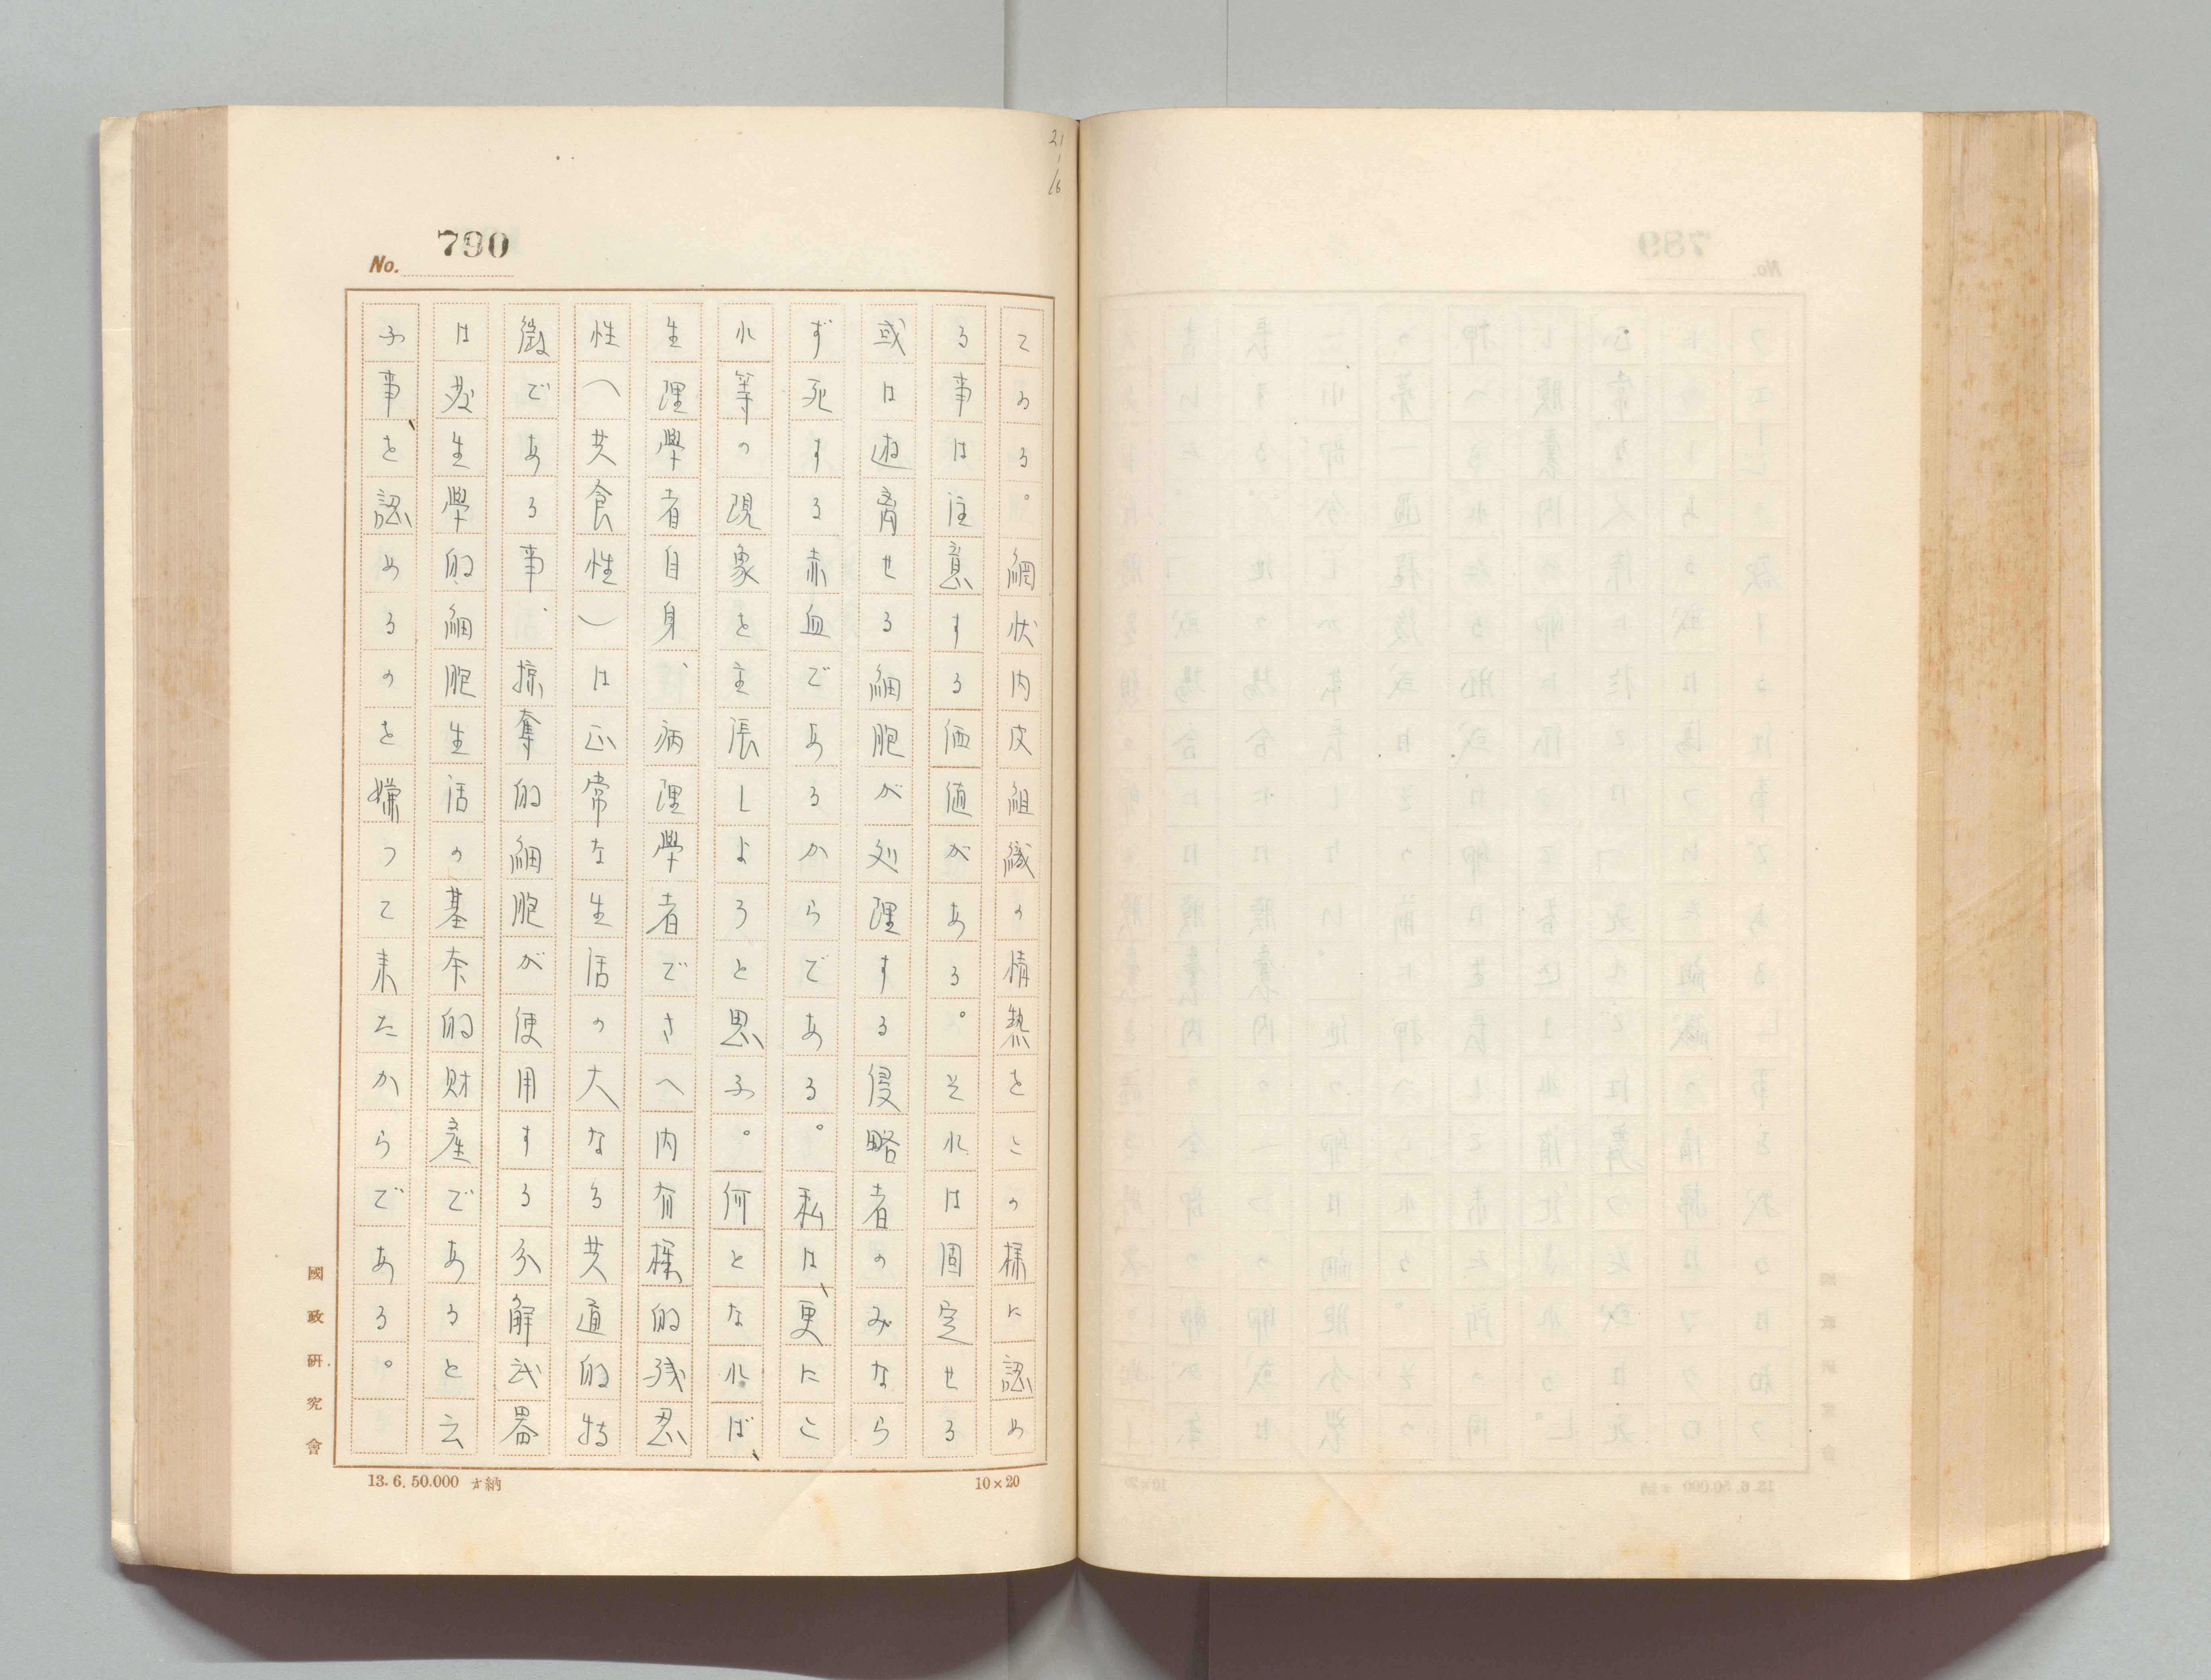 21
1
16
No. 790
てゐる。網状内皮組織の情熱をこの様に認め
る事は注意する価値がある。それは固定せる
或は遊离せる細胞が処理する侵略者のみなら
ず死する赤血であるからである。私は、更にこ
れ等の現象を主張しようと思ふ。何となれば、
生理學者自身、病理學者でさへ内有様的残忍
性（共食性）は正常な生活の大なる共道的特
徴である事、掠奪的細胞が使用する分解武器
は発生學的細胞生活の基本的財産であると云
ふ事、を認めるのを嫌つて来たからである。
國政研究會
13.6.50.000 才納
10×20